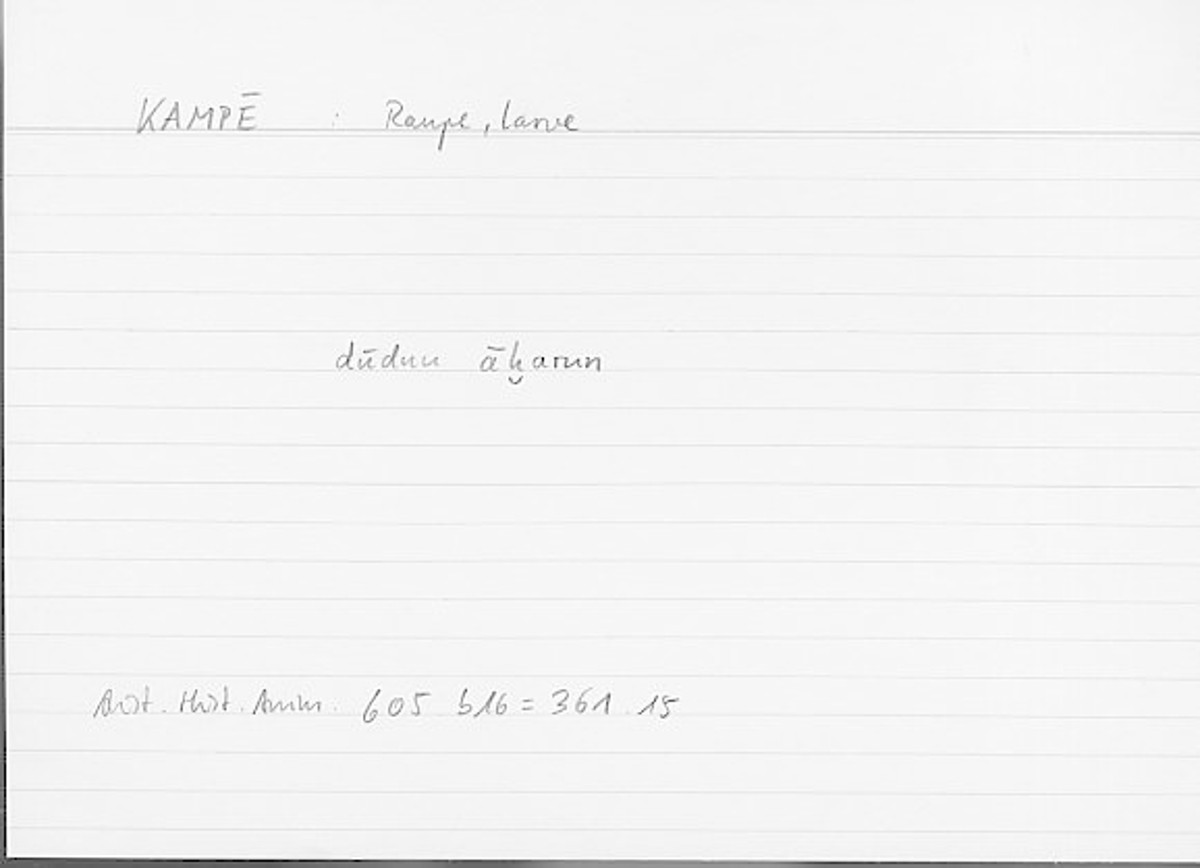 KAMPĒ : Raupe, Larve
dūdun āḫarun
Arist. Hist. Anim. 605 b16 = 361.15